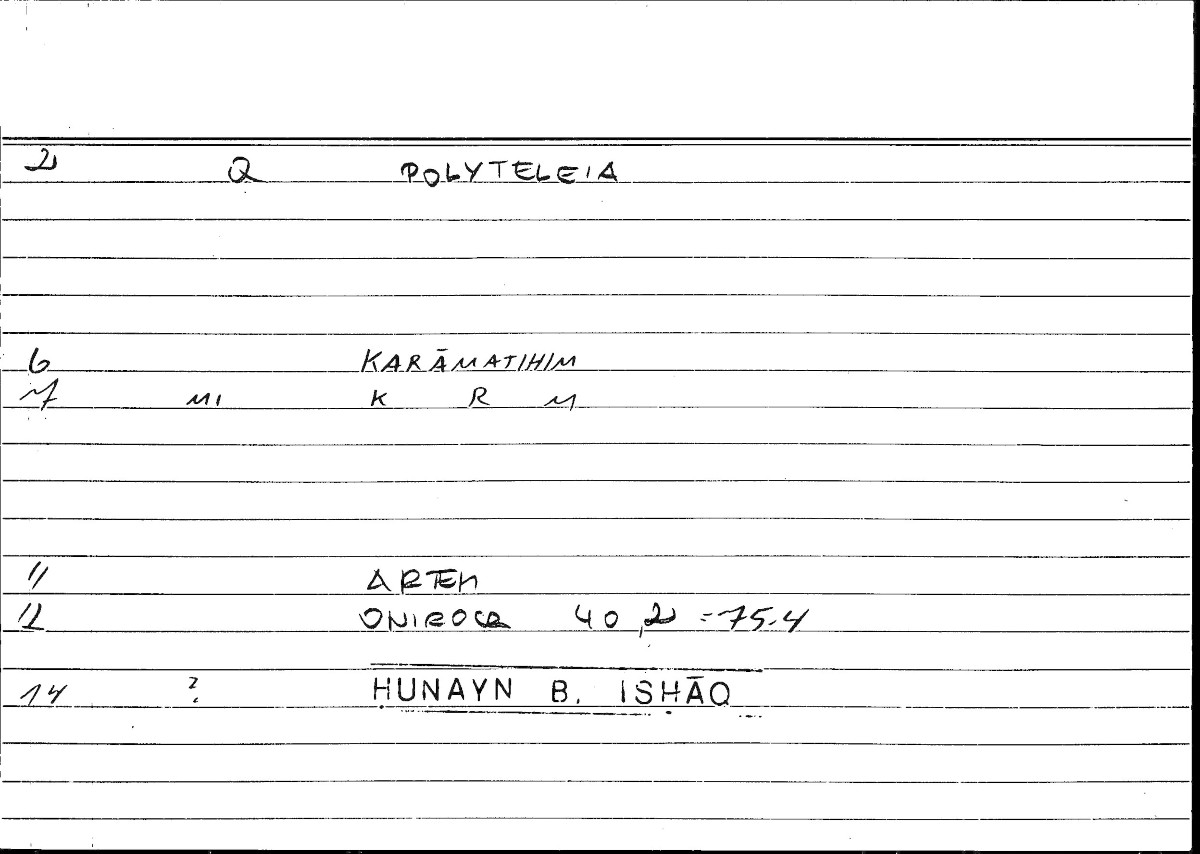 2 Q POLYTELEIA
6 KARĀMATIHIM
7 MI K R M
11 ARTEM
12 ONIROCR 40,2 = 75.4
14 ? ḤUNAYN B. ISḤĀQ